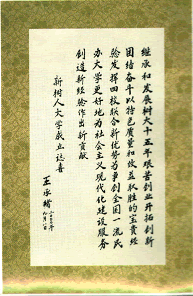 继承和发展树大十五年艰苦创业开拓创新
团结奋斗以特色质量和效益取胜的宝贵经
验发挥四校联合新优势为争创全国一流民
办大学更好地为社会主义现代化建设服务
创造新经验作出新贡献
新树人大学成立志喜
王承绪
二〇〇〇年